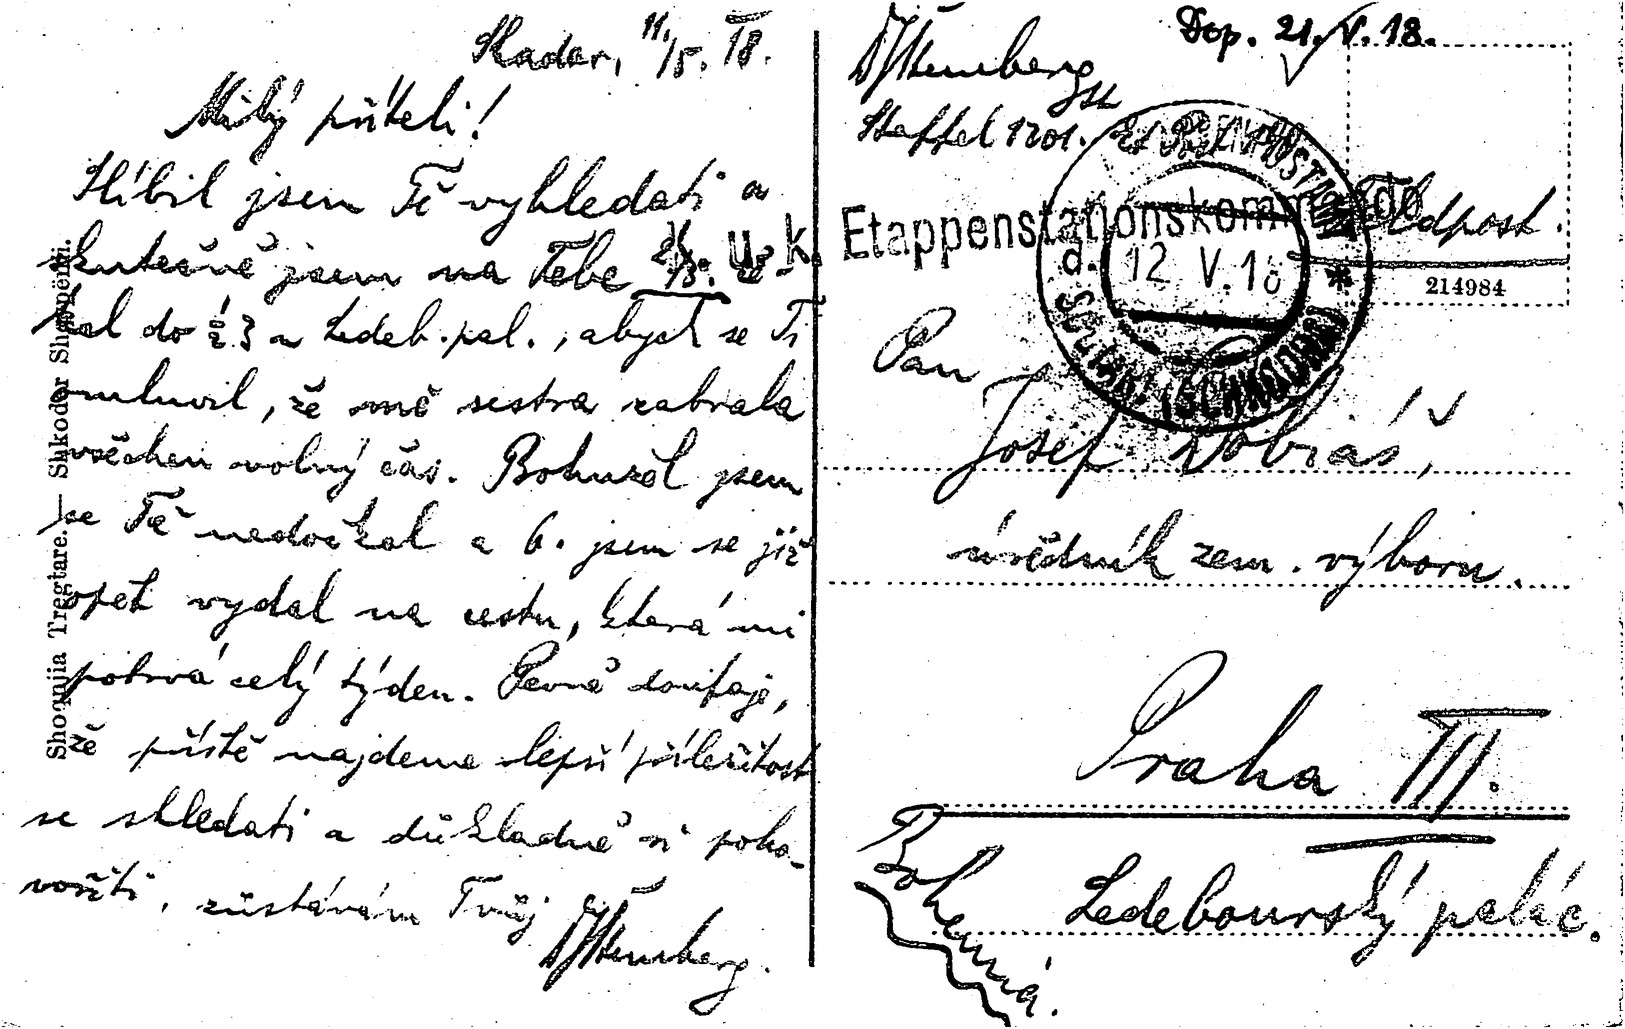 Skadar, 11./5. 18.
Milý příteli!
Slíbil jsem Tě vyhledati a
skutečně jsem na Tebe 2/5. če-
kal do ½ 3 v Ledeb. pal., abych se Ti
omluvil, že mě sestra zabrala
všechen volný čas. Bohužel jsem
se Tě nedočkal a 6. jsem se již
opět vydal na cestu, která mi
potrvá celý týden. Pevně doufaje,
že příště najdeme lepší příležitost
se shledati a důkladně si poho-
vořiti, zůstávám Tvůj
Sternberg.
Shoqnija Tregtare. — Shkodër Shqypëni.
Dop. 21. V. 18.
Sternberg
Staffel 1201.
Feldpost.
u. k. Etappenstationskommando
ETAPPENPOSTAMT
d. 12 V. 18 *
SCUTARI (SCHKODRA)
214984
Pan
Josef Dobiáš,
úředník zem. výboru.
Praha III.
Ledebourský palác.
Bohemia.